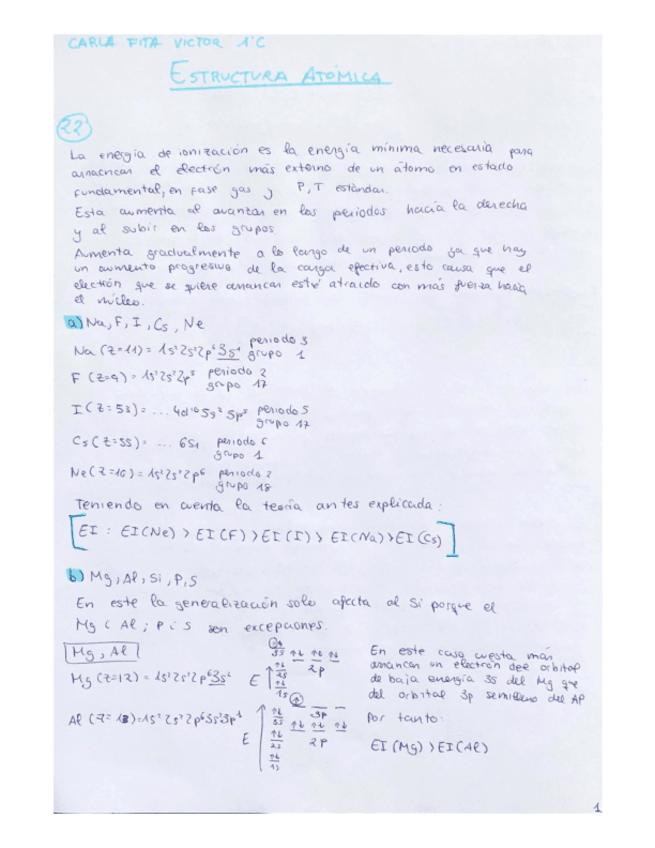 CARLA FITA VICTOR 1ºC
ESTRUCTURA ATÓMICA
22
La energía de ionización es la energía mínima necesaria para
arrancar el electrón más externo de un átomo en estado
fundamental, en fase gas y P, T estándar.
Esta aumenta al avanzar en los periodos hacia la derecha
y al subir en los grupos
Aumenta gradualmente a lo largo de un periodo ya que hay
un aumento progresivo de la carga efectiva, esto causa que el
electrón que se quiere arrancar esté atraido con más fuerza hacia
el núcleo.
a) Na, F, I, Cs, Ne
Na (Z=11) = 1s²2s²2p⁶3s¹ periodo 3
grupo 1
F (Z=9) = 1s²2s²2p⁵ periodo 2
grupo 17
I (Z=53) = ... 4d¹⁰5s²5p⁵ periodo 5
grupo 17
Cs (Z=55) = ... 6s1 periodo 6
grupo 1
Ne (Z=10) = 1s²2s²2p⁶ periodo 2
grupo 18
Teniendo en cuenta la teoría antes explicada:
EI : EI(Ne) > EI(F) > EI(I) > EI(Na) > EI(Cs)
b) Mg, Al, Si, P, S
En este la generalización solo afecta al Si porque el
Mg i Al ; P i S son excepciones.
Mg, Al
Mg (Z=12) = 1s²2s²2p⁶3s²
E
3s
2p
2s
1s
En este caso cuesta más
arrancar un electrón del orbital
de baja energía 3s del Mg que
del orbital 3p semilleno del Al
Por tanto:
EI(Mg) > EI(Al)
Al (Z=13) = 1s²2s²2p⁶3s²3p¹
E
3p
3s
2p
2s
1s
1